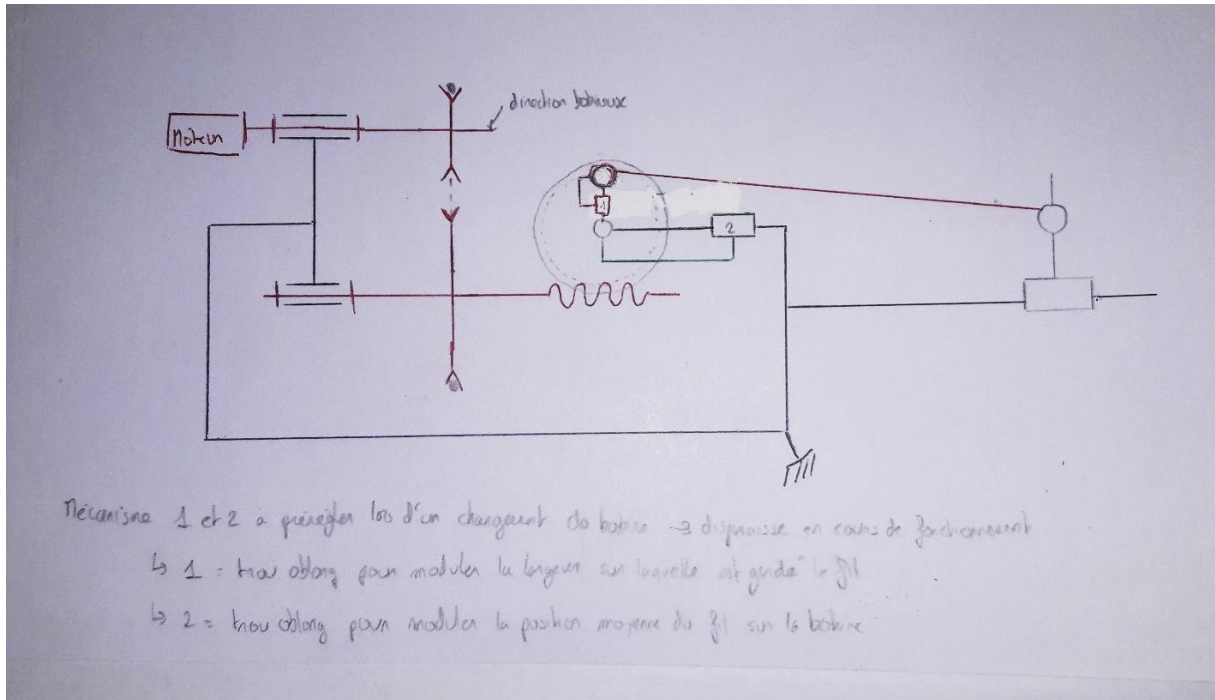 direction bobineux
Moteur
1
2
Mécanisme 1 et 2 à prérégler lors d'un changement de bobine → disparaisse en cours de fonctionnement
↳ 1 = trou oblong pour moduler la longueur sur laquelle est guidé le fil
↳ 2 = trou oblong pour moduler la position moyenne du fil sur la bobine